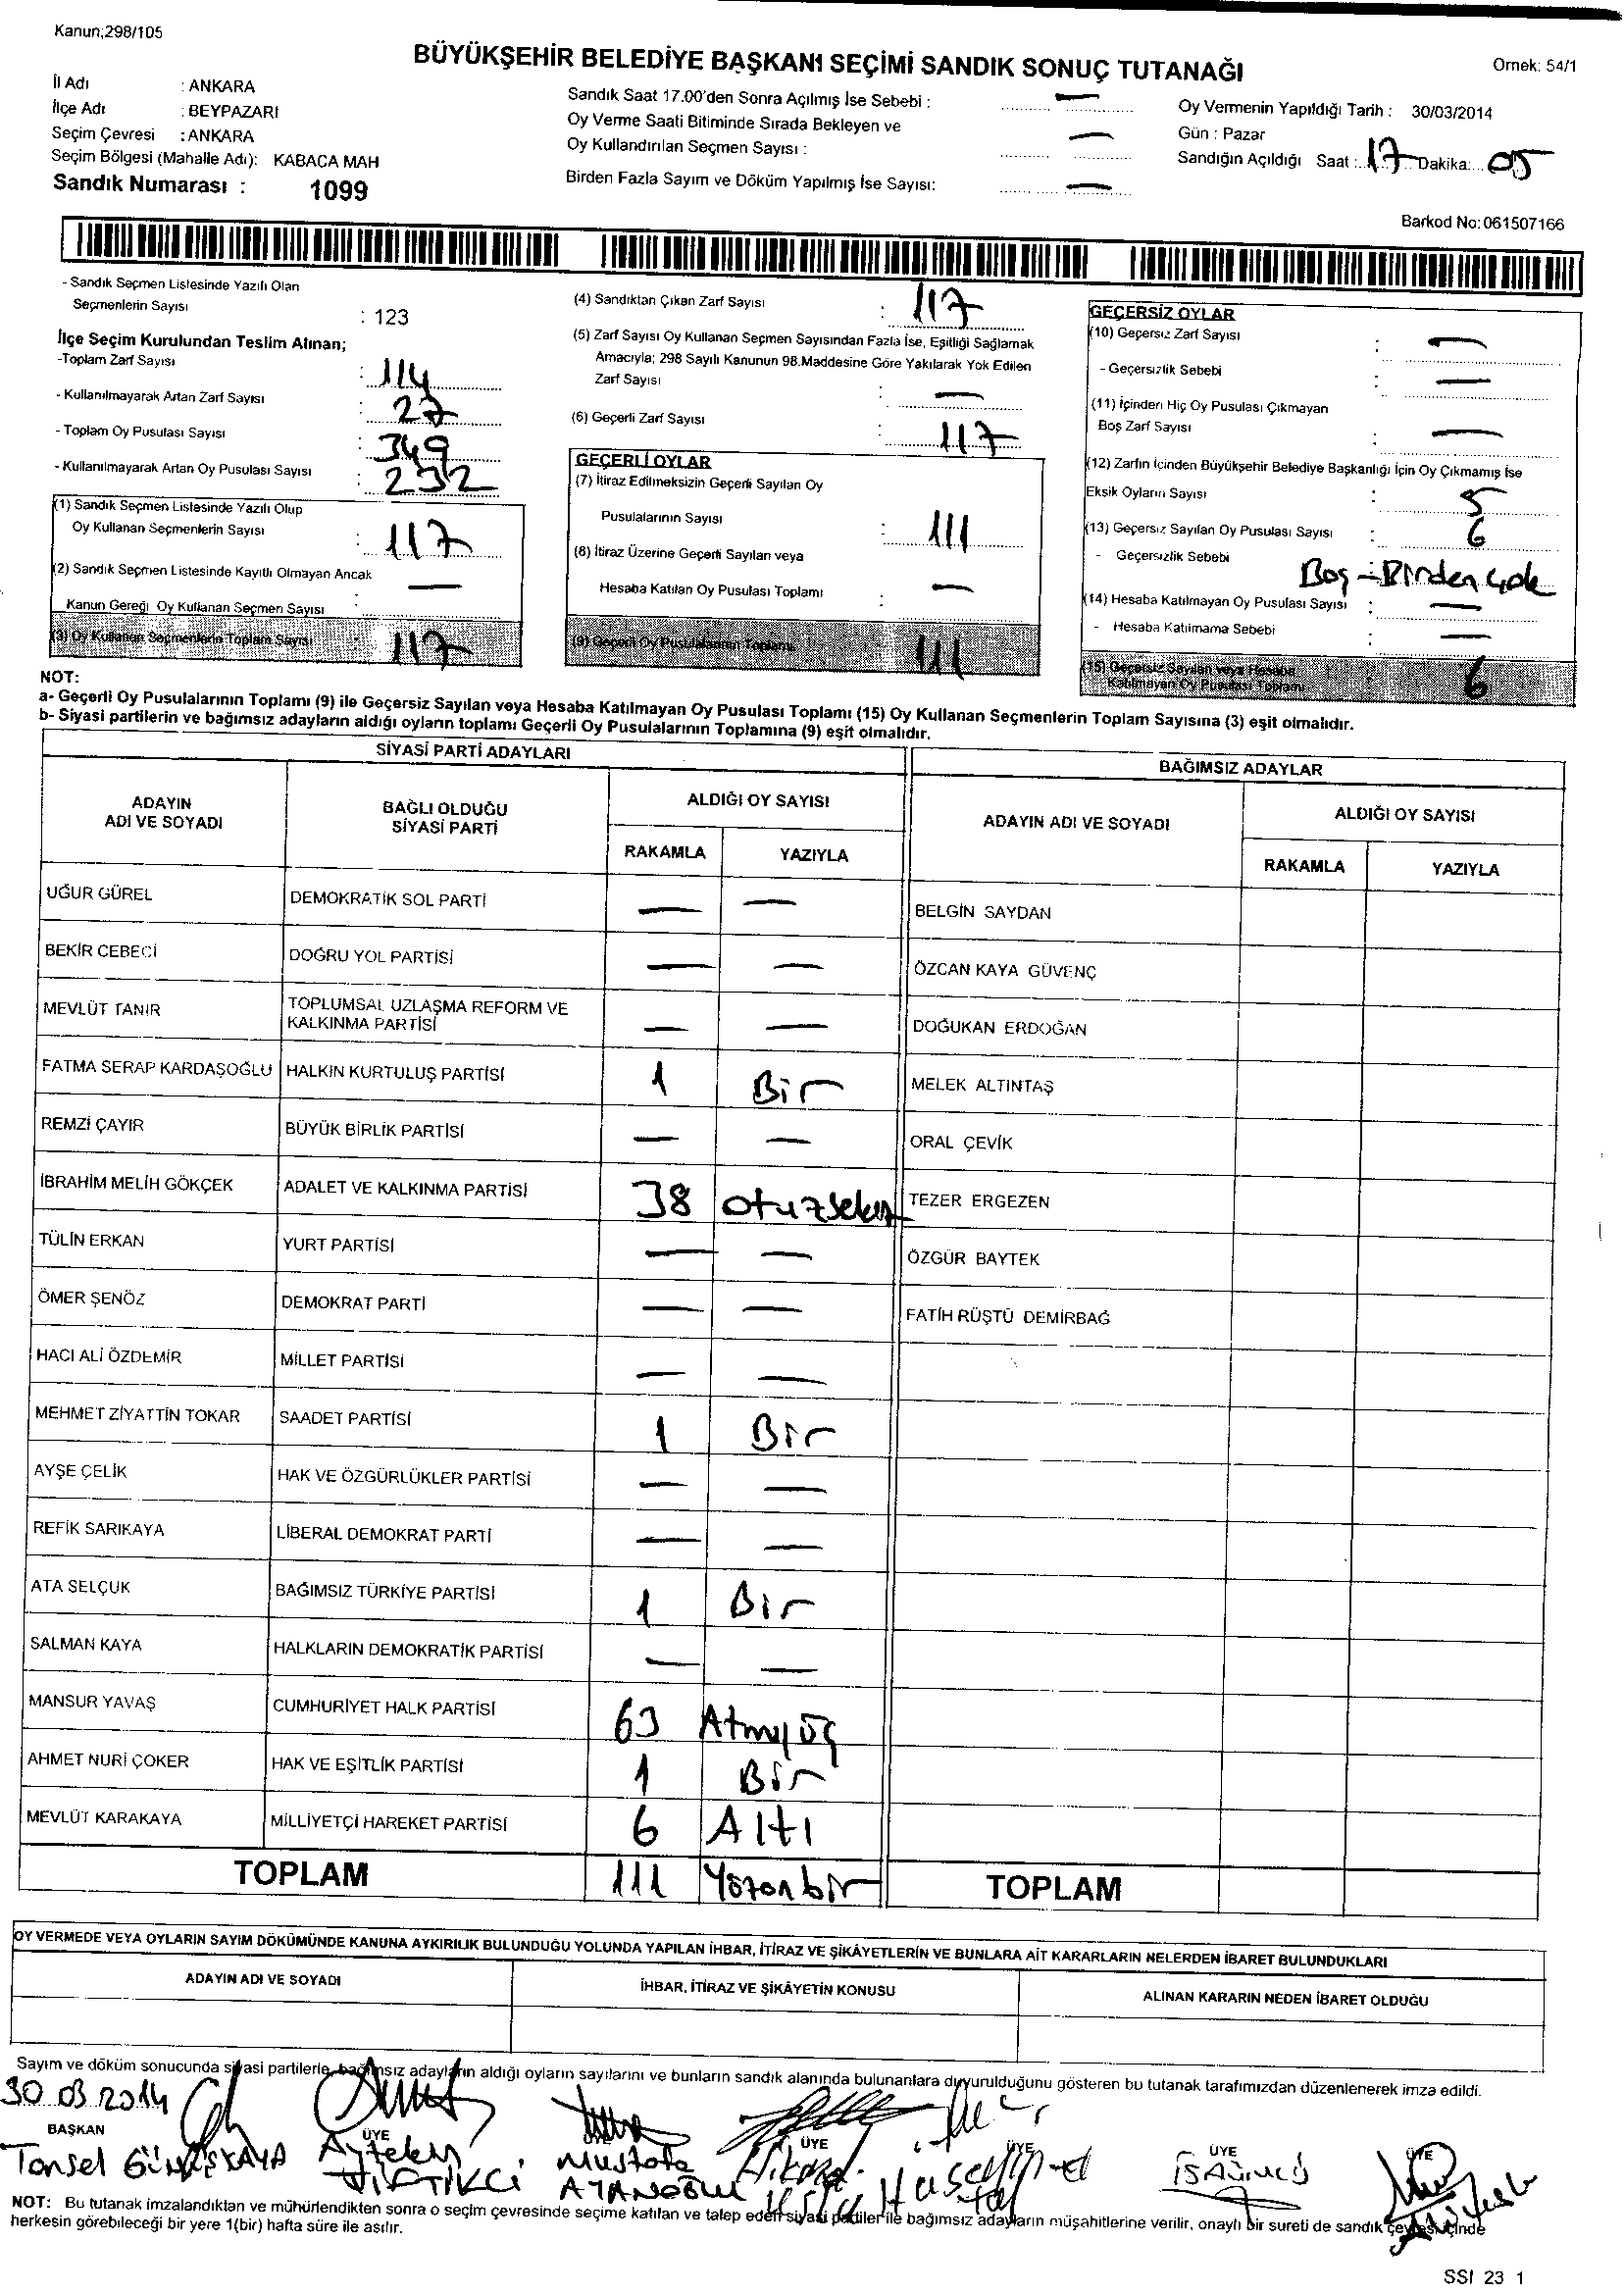 Kanun;298/105
BÜYÜKŞEHİR BELEDİYE BAŞKANI SEÇİMİ SANDIK SONUÇ TUTANAĞI
Ornek: 54/1
İl Adı : ANKARA
İlçe Adı : BEYPAZARI
Seçim Çevresi : ANKARA
Seçim Bölgesi (Mahalle Adı): KABACA MAH
Sandık Numarası : 1099
Sandık Saat 17.00'den Sonra Açılmış İse Sebebi : —
Oy Verme Saati Bitiminde Sırada Bekleyen ve
Oy Kullandırılan Seçmen Sayısı : —
Birden Fazla Sayım ve Döküm Yapılmış İse Sayısı: —
Oy Vermenin Yapıldığı Tarih : 30/03/2014
Gün : Pazar
Sandığın Açıldığı Saat : 17 Dakika: 05
Barkod No:061507166
- Sandık Seçmen Listesinde Yazılı Olan
Seçmenlerin Sayısı : 123
İlçe Seçim Kurulundan Teslim Alınan;
-Toplam Zarf Sayısı : 114
- Kullanılmayarak Artan Zarf Sayısı : 27
- Toplam Oy Pusulası Sayısı : 349
- Kullanılmayarak Artan Oy Pusulası Sayısı : 232
(1) Sandık Seçmen Listesinde Yazılı Olup
Oy Kullanan Seçmenlerin Sayısı : 117
(2) Sandık Seçmen Listesinde Kayıtlı Olmayan Ancak
Kanun Gereği Oy Kullanan Seçmen Sayısı : —
(3) Oy Kullanan Seçmenlerin Toplam Sayısı 117
(4) Sandıktan Çıkan Zarf Sayısı : 117
(5) Zarf Sayısı Oy Kullanan Seçmen Sayısından Fazla İse, Eşitliği Sağlamak
Amacıyla; 298 Sayılı Kanunun 98.Maddesine Göre Yakılarak Yok Edilen
Zarf Sayısı : —
(6) Geçerli Zarf Sayısı : 117
GEÇERLİ OYLAR
(7) İtiraz Edilmeksizin Geçerli Sayılan Oy
Pusulalarının Sayısı : 111
(8) İtiraz Üzerine Geçerli Sayılan veya
Hesaba Katılan Oy Pusulası Toplamı : —
(9) Geçerli Oy Pusulalarının Toplamı 111
GEÇERSİZ OYLAR
(10) Geçersiz Zarf Sayısı : —
- Geçersizlik Sebebi : —
(11) İçinden Hiç Oy Pusulası Çıkmayan
Boş Zarf Sayısı : —
(12) Zarfın İçinden Büyükşehir Belediye Başkanlığı İçin Oy Çıkmamış İse
Eksik Oyların Sayısı : 5
(13) Geçersiz Sayılan Oy Pusulası Sayısı : 6
- Geçersizlik Sebebi Boş - Birden çok
(14) Hesaba Katılmayan Oy Pusulası Sayısı : —
- Hesaba Katılmama Sebebi : —
(15) Geçersiz Sayılan veya Hesaba
Katılmayan Oy Pusulası Toplamı 6
NOT:
a- Geçerli Oy Pusulalarının Toplamı (9) ile Geçersiz Sayılan veya Hesaba Katılmayan Oy Pusulası Toplamı (15) Oy Kullanan Seçmenlerin Toplam Sayısına (3) eşit olmalıdır.
b- Siyasi partilerin ve bağımsız adayların aldığı oyların toplamı Geçerli Oy Pusulalarının Toplamına (9) eşit olmalıdır.
SİYASİ PARTİ ADAYLARI
BAĞIMSIZ ADAYLAR
ADAYIN ADI VE SOYADI
BAĞLI OLDUĞU SİYASİ PARTİ
ALDIĞI OY SAYISI
RAKAMLA YAZIYLA
ADAYIN ADI VE SOYADI
ALDIĞI OY SAYISI
RAKAMLA YAZIYLA
UĞUR GÜREL DEMOKRATİK SOL PARTİ — — BELGİN SAYDAN
BEKİR CEBECİ DOĞRU YOL PARTİSİ — — ÖZCAN KAYA GÜVENÇ
MEVLÜT TANIR TOPLUMSAL UZLAŞMA REFORM VE KALKINMA PARTİSİ — — DOĞUKAN ERDOĞAN
FATMA SERAP KARDAŞOĞLU HALKIN KURTULUŞ PARTİSİ 1 Bir MELEK ALTINTAŞ
REMZİ ÇAYIR BÜYÜK BİRLİK PARTİSİ — — ORAL ÇEVİK
İBRAHİM MELİH GÖKÇEK ADALET VE KALKINMA PARTİSİ 38 otuzsekiz TEZER ERGEZEN
TÜLİN ERKAN YURT PARTİSİ — — ÖZGÜR BAYTEK
ÖMER ŞENÖZ DEMOKRAT PARTİ — — FATİH RÜŞTÜ DEMİRBAĞ
HACI ALİ ÖZDEMİR MİLLET PARTİSİ — —
MEHMET ZİYATTİN TOKAR SAADET PARTİSİ 1 Bir
AYŞE ÇELİK HAK VE ÖZGÜRLÜKLER PARTİSİ — —
REFİK SARIKAYA LİBERAL DEMOKRAT PARTİ — —
ATA SELÇUK BAĞIMSIZ TÜRKİYE PARTİSİ 1 Bir
SALMAN KAYA HALKLARIN DEMOKRATİK PARTİSİ — —
MANSUR YAVAŞ CUMHURİYET HALK PARTİSİ 63 Atmışüç
AHMET NURİ ÇOKER HAK VE EŞİTLİK PARTİSİ 1 Bir
MEVLÜT KARAKAYA MİLLİYETÇİ HAREKET PARTİSİ 6 Altı
TOPLAM 111 Yüzonbir TOPLAM
OY VERMEDE VEYA OYLARIN SAYIM DÖKÜMÜNDE KANUNA AYKIRILIK BULUNDUĞU YOLUNDA YAPILAN İHBAR, İTİRAZ VE ŞİKÂYETLERİN VE BUNLARA AİT KARARLARIN NELERDEN İBARET BULUNDUKLARI
ADAYIN ADI VE SOYADI İHBAR, İTİRAZ VE ŞİKÂYETİN KONUSU ALINAN KARARIN NEDEN İBARET OLDUĞU
Sayım ve döküm sonucunda siyasi partilerle, bağımsız adayların aldığı oyların sayılarını ve bunların sandık alanında bulunanlara duyurulduğunu gösteren bu tutanak tarafımızdan düzenlenerek imza edildi.
30 03 2014
BAŞKAN ÜYE ÜYE ÜYE ÜYE ÜYE
Tansel GÜNEŞKAYA Aytekin ÇİFTİKCİ Mustafa AYANOĞLU
NOT: Bu tutanak imzalandıktan ve mühürlendikten sonra o seçim çevresinde seçime katılan ve talep eden siyasi partiler ile bağımsız adayların müşahitlerine verilir, onaylı bir sureti de sandık çevresi içinde
herkesin görebileceği bir yere 1(bir) hafta süre ile asılır.
SSI 23 1